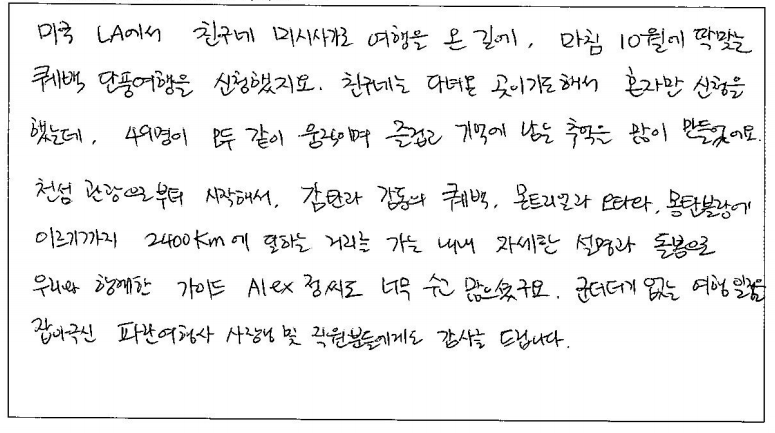 미국 LA에서 친구네 미시사가로 여행을 온 길에, 마침 10월에 딱맞는
퀘백 단풍여행을 신청했지요. 친구네는 다녀온 곳이기도해서 혼자만 신청을
했는데, 49명이 모두 같이 움직이며 즐겁고 기억에 남는 추억을 많이 만들었어요.
천섬 관광으로부터 시작해서, 감탄과 감동의 퀘백, 몬트리올과 오타와, 몽탄블랑에
이르기까지 2400km에 달하는 거리를 가는 내내 자세한 설명과 돌봄으로
우리와 함께한 가이드 Alex 정씨도 너무 수고 많으셨구요. 군더더기 없는 여행 일정을
잡아주신 파란여행사 사장님 및 직원분들에게도 감사를 드립니다.